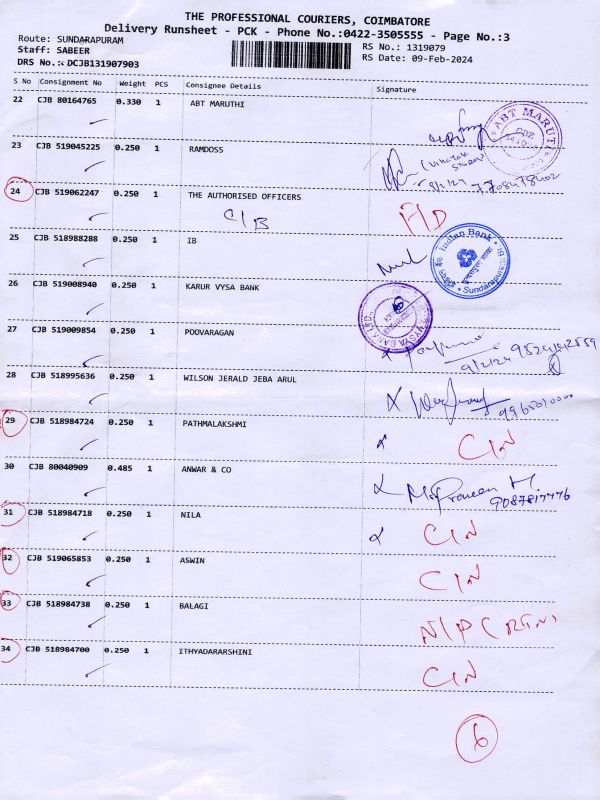 THE PROFESSIONAL COURIERS, COIMBATORE
Delivery Runsheet - PCK - Phone No.:0422-3505555 - Page No.:3
Route: SUNDARAPURAM
RS No.: 1319079
Staff: SABEER
RS Date: 09-Feb-2024
DRS No.: DCJB131907903
S No Consignment No Weight PCS Consignee Details Signature
22 CJB 80164765 0.330 1 ABT MARUTHI
ABT MARUTI
23 CJB 519045225 0.250 1 RAMDOSS
24 CJB 519062247 0.250 1 THE AUTHORISED OFFICERS
C/B
25 CJB 518988288 0.250 1 IB
Indian Bank
Sundarapuram
26 CJB 519008940 0.250 1 KARUR VYSA BANK
27 CJB 519009854 0.250 1 POOVARAGAN
9/2/24
28 CJB 518995636 0.250 1 WILSON JERALD JEBA ARUL
29 CJB 518984724 0.250 1 PATHMALAKSHMI
CIN
30 CJB 80040909 0.485 1 ANWAR & CO
Praveen M.
31 CJB 518984718 0.250 1 NILA
CIN
32 CJB 519065853 0.250 1 ASWIN
CIN
33 CJB 518984738 0.250 1 BALAGI
34 CJB 518984700 0.250 1 ITHYADARARSHINI
CIN
6